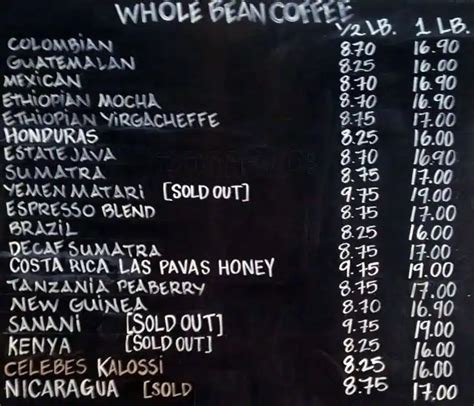 WHOLE BEAN COFFEE
1/2 LB. 1 LB.
COLOMBIAN 8.70 16.90
GUATEMALAN 8.25 16.00
MEXICAN 8.70 16.90
ETHIOPIAN MOCHA 8.70 16.90
ETHIOPIAN YIRGACHEFFE 8.75 17.00
HONDURAS 8.25 16.00
ESTATE JAVA 8.70 16.90
SUMATRA 8.75 17.00
YEMEN MATARI [SOLD OUT] 9.75 19.00
ESPRESSO BLEND 8.75 17.00
BRAZIL 8.25 16.00
DECAF SUMATRA 8.75 17.00
COSTA RICA LAS PAVAS HONEY 9.75 19.00
TANZANIA PEABERRY 8.75 17.00
NEW GUINEA 8.70 16.90
SANANI [SOLD OUT] 9.75 19.00
KENYA [SOLD OUT] 8.25 16.00
CELEBES KALOSSI 8.25 16.00
NICARAGUA [SOLD 8.75 17.00